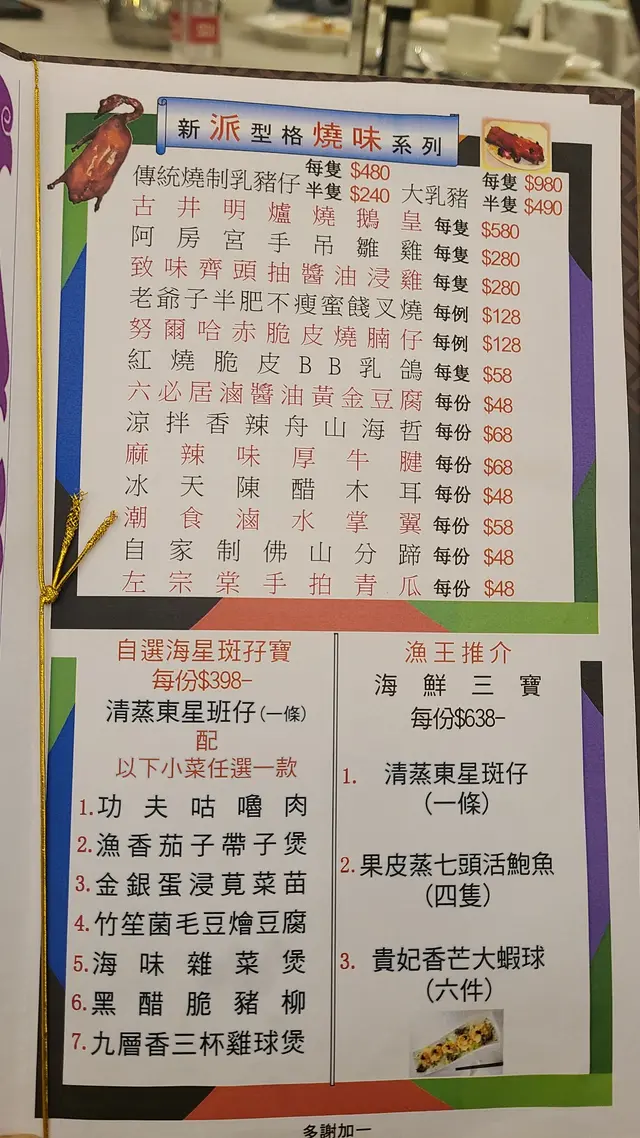 新派型格燒味系列
傳統燒制乳豬仔 每隻 $480 半隻 $240 大乳豬 每隻 $980 半隻 $490
古井明爐燒鵝皇 每隻 $580
阿房宮手吊雞雞 每隻 $280
致味齊頭抽醬油浸雞 每隻 $280
老爺子半肥不瘦蜜餞叉燒 每例 $128
努爾哈赤脆皮燒腩仔 每例 $128
紅燒脆皮BB乳鴿 每隻 $58
六必居滷醬油黃金豆腐 每份 $48
涼拌香辣舟山海哲 每份 $68
麻辣味厚牛腱 每份 $68
冰天陳醋木耳 每份 $48
潮食滷水掌翼 每份 $58
自家制佛山分蹄 每份 $48
左宗棠手拍青瓜 每份 $48
自選海星斑孖寶
每份$398-
清蒸東星班仔(一條)
配
以下小菜任選一款
1.功夫咕嚕肉
2.漁香茄子帶子煲
3.金銀蛋浸莧菜苗
4.竹笙菌毛豆燴豆腐
5.海味雜菜煲
6.黑醋脆豬柳
7.九層香三杯雞球煲
漁王推介
海鮮三寶
每份$638-
1. 清蒸東星斑仔
(一條)
2.果皮蒸七頭活鮑魚
(四隻)
3. 貴妃香芒大蝦球
(六件)
多謝加一